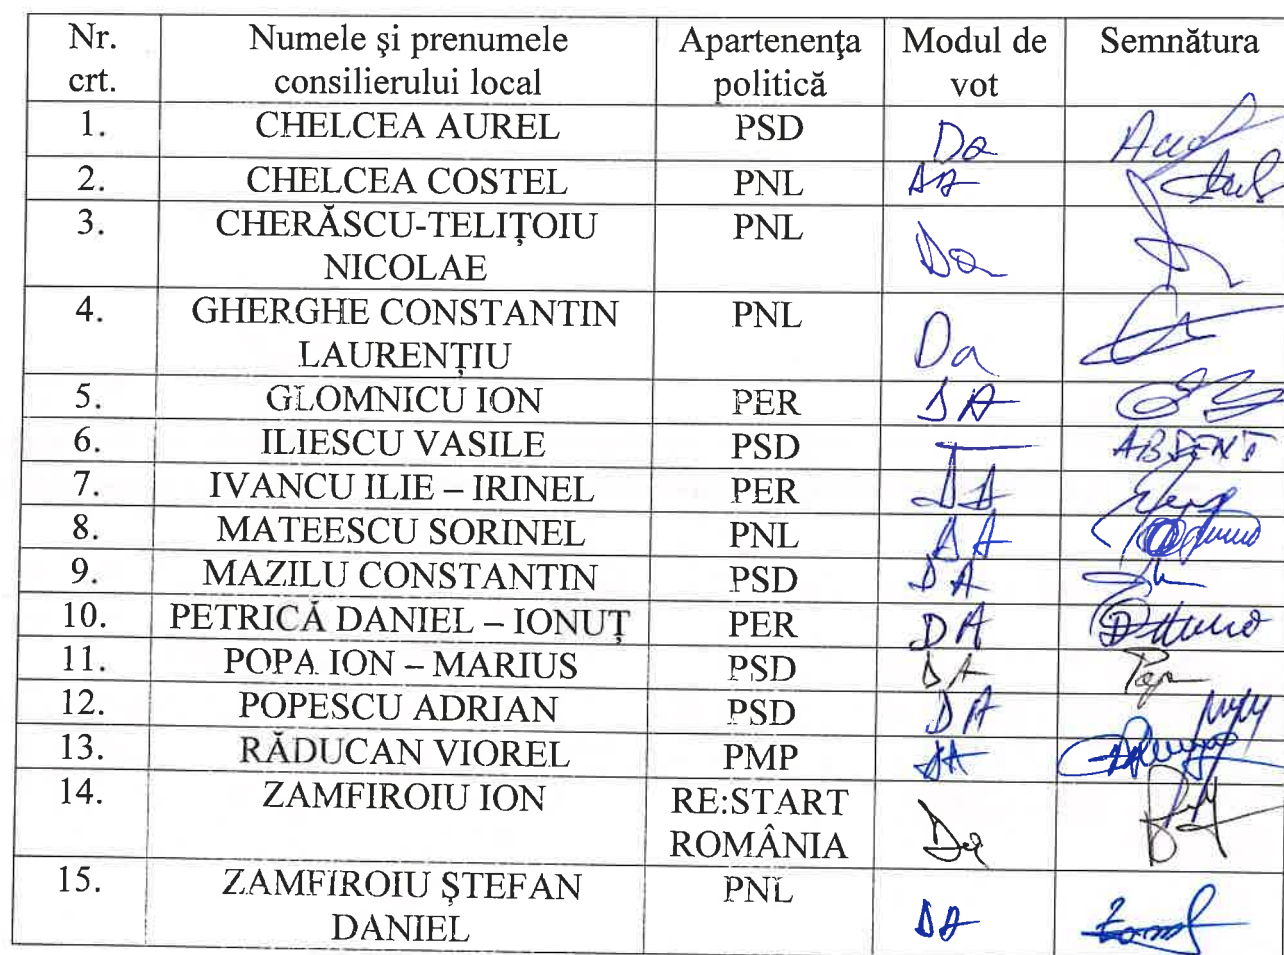 Nr. crt. Numele şi prenumele consilierului local Apartenenţa politică Modul de vot Semnătura
1. CHELCEA AUREL PSD Da
2. CHELCEA COSTEL PNL DA
3. CHERĂSCU-TELIŢOIU NICOLAE PNL Da
4. GHERGHE CONSTANTIN LAURENŢIU PNL Da
5. GLOMNICU ION PER DA
6. ILIESCU VASILE PSD — ABSENT
7. IVANCU ILIE – IRINEL PER DA
8. MATEESCU SORINEL PNL DA
9. MAZILU CONSTANTIN PSD DA
10. PETRICĂ DANIEL – IONUŢ PER DA
11. POPA ION – MARIUS PSD DA Popa
12. POPESCU ADRIAN PSD DA
13. RĂDUCAN VIOREL PMP DA
14. ZAMFIROIU ION RE:START ROMÂNIA Da
15. ZAMFIROIU ŞTEFAN DANIEL PNL DA